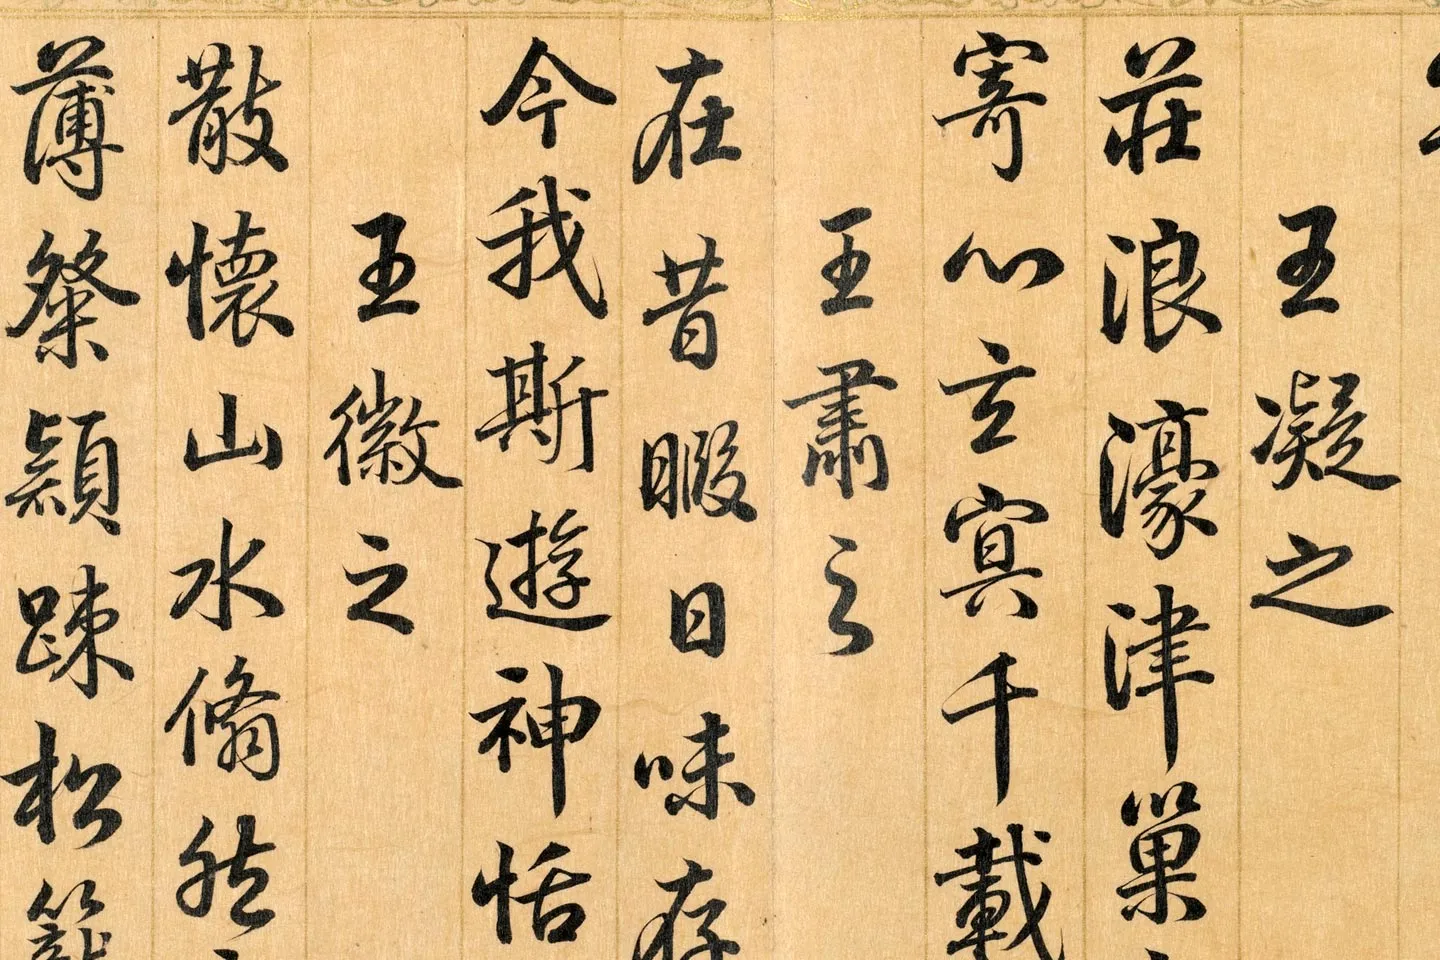 王凝之
莊浪濠津巢
寄心玄冥千載
王肅之
在昔暇日味存
今我斯遊神恬
王徽之
散懷山水翛然
薄粲穎疎松籠